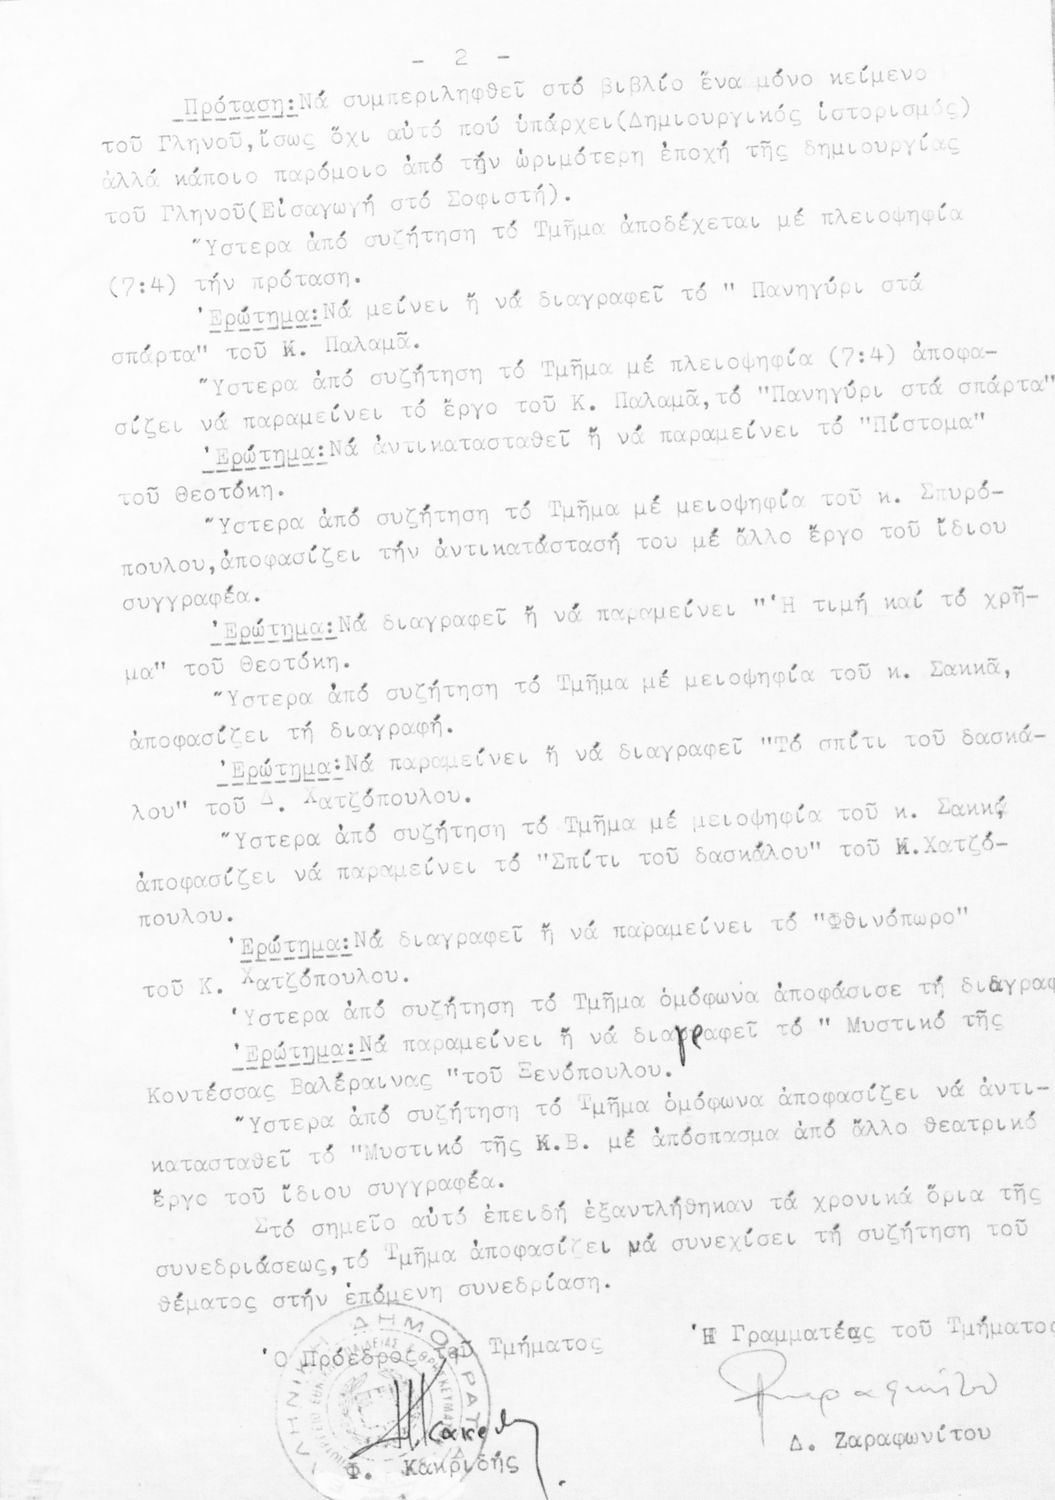 - 2 -
Πρόταση:Νά συμπεριληφθεῖ στό βιβλίο ἕνα μόνο κείμενο
τοῦ Γληνοῦ,ἴσως ὄχι αὐτό πού ὑπάρχει(Δημιουργικός ἱστορισμός)
ἀλλά κάποιο παρόμοιο ἀπό τήν ὡριμότερη ἐποχή τῆς δημιουργίας
τοῦ Γληνοῦ(Εἰσαγωγή στό Σοφιστή).
Ὕστερα ἀπό συζήτηση τό Τμῆμα ἀποδέχεται μέ πλειοψηφία
(7:4) τήν πρόταση.
Ἐρώτημα:Νά μείνει ἤ νά διαγραφεῖ τό " Πανηγύρι στά
σπάρτα" τοῦ Κ. Παλαμᾶ.
Ὕστερα ἀπό συζήτηση τό Τμῆμα μέ πλειοψηφία (7:4) ἀποφα-
σίζει νά παραμείνει τό ἔργο τοῦ Κ. Παλαμᾶ,τό "Πανηγύρι στά σπάρτα"
Ἐρώτημα:Νά ἀντικατασταθεῖ ἤ νά παραμείνει τό "Πίστομα"
τοῦ Θεοτόκη.
Ὕστερα ἀπό συζήτηση τό Τμῆμα μέ μειοψηφία τοῦ κ. Σπυρό-
πουλου,ἀποφασίζει τήν ἀντικατάστασή του μέ ἄλλο ἔργο τοῦ ἴδιου
συγγραφέα.
Ἐρώτημα:Νά διαγραφεῖ ἤ νά παραμείνει "Ἡ τιμή καί τό χρῆ-
μα" τοῦ Θεοτόκη.
Ὕστερα ἀπό συζήτηση τό Τμῆμα μέ μειοψηφία τοῦ κ. Σακκᾶ,
ἀποφασίζει τή διαγραφή.
Ἐρώτημα:Νά παραμείνει ἤ νά διαγραφεῖ "Τό σπίτι τοῦ δασκά-
λου" τοῦ Δ. Χατζόπουλου.
Ὕστερα ἀπό συζήτηση τό Τμῆμα μέ μειοψηφία τοῦ κ. Σακκᾶ
ἀποφασίζει νά παραμείνει τό "Σπίτι τοῦ δασκάλου" τοῦ Κ.Χατζό-
πουλου.
Ἐρώτημα:Νά διαγραφεῖ ἤ νά παραμείνει τό "Φθινόπωρο"
τοῦ Κ. Χατζόπουλου.
Ὕστερα ἀπό συζήτηση τό Τμῆμα ὁμόφωνα ἀποφάσισε τή διαγραφ
Ἐρώτημα:Νά παραμείνει ἤ νά διαγραφεῖ τό " Μυστικό τῆς
Κοντέσσας Βαλέραινας "τοῦ Ξενόπουλου.
Ὕστερα ἀπό συζήτηση τό Τμῆμα ὁμόφωνα ἀποφασίζει νά ἀντι-
κατασταθεῖ τό "Μυστικό τῆς Κ.Β. μέ ἀπόσπασμα ἀπό ἄλλο θεατρικό
ἔργο τοῦ ἴδιου συγγραφέα.
Στό σημεῖο αὐτό ἐπειδή ἐξαντλήθηκαν τά χρονικά ὅρια τῆς
συνεδριάσεως,τό Τμῆμα ἀποφασίζει νά συνεχίσει τή συζήτηση τοῦ
θέματος στήν ἑπόμενη συνεδρίαση.
Ὁ Πρόεδρος τοῦ Τμήματος
Ἡ Γραμματέας τοῦ Τμήματος
Φ. Κακριδής
Δ. Ζαραφωνίτου